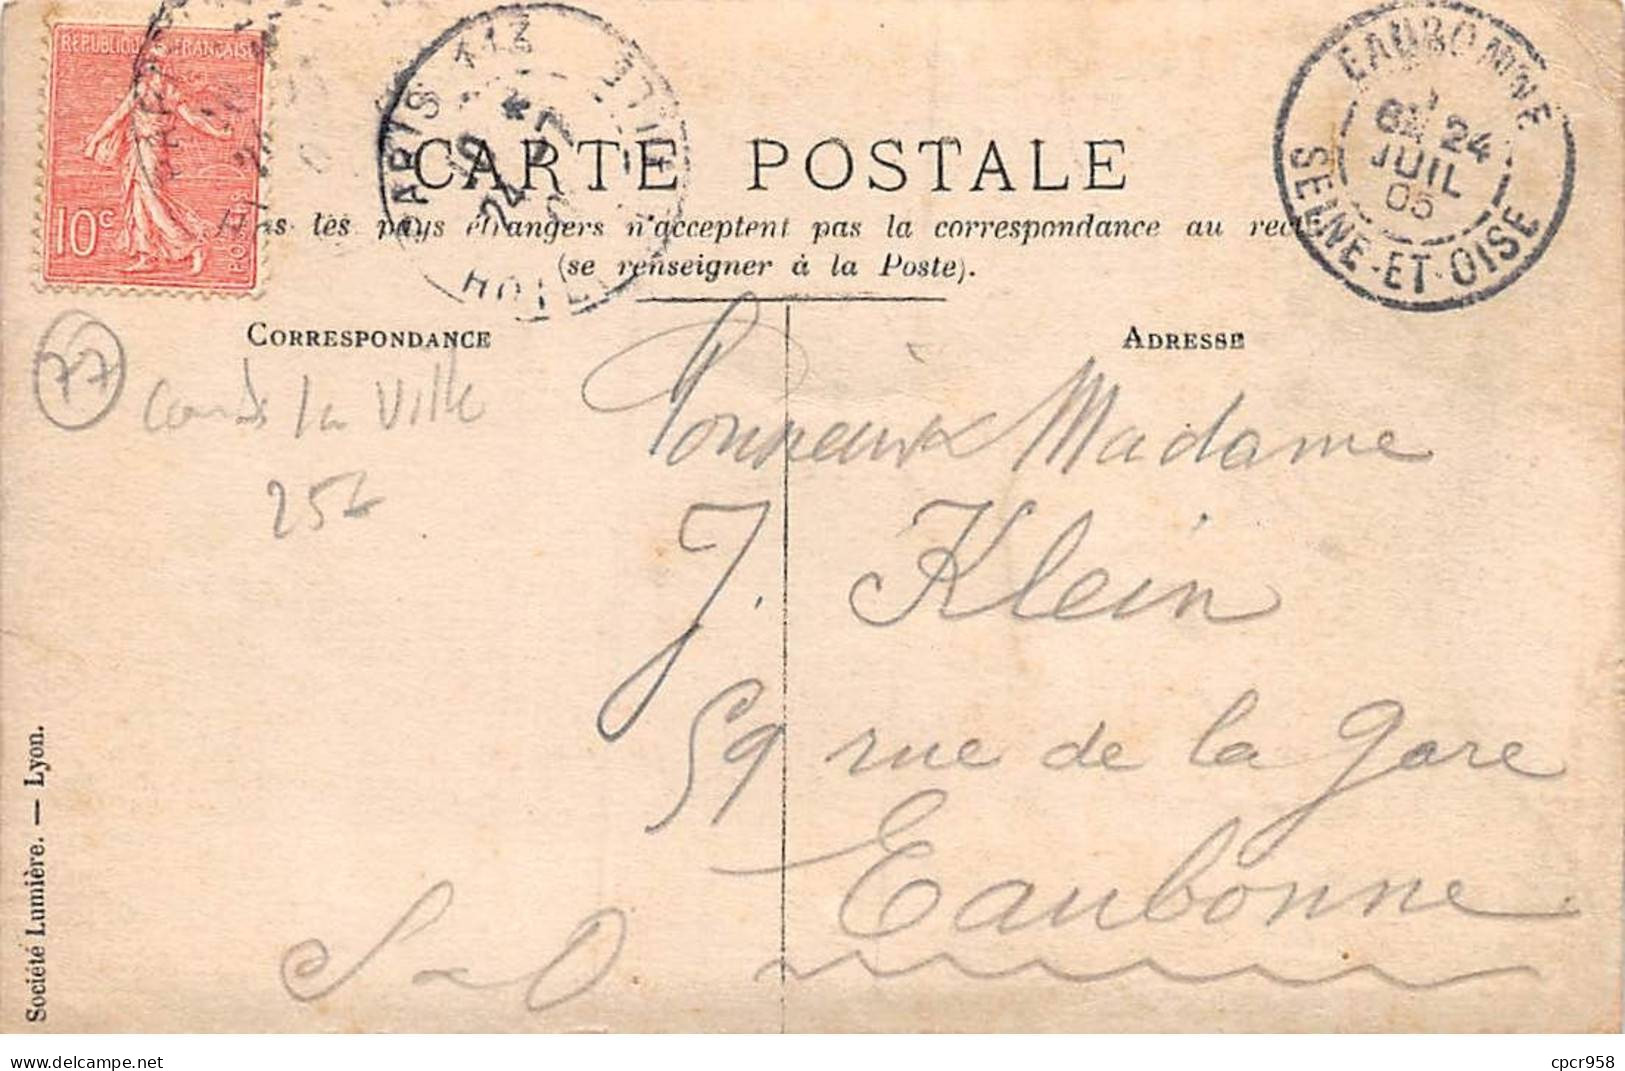 REPUBLIQUE FRANÇAISE
10c
POSTES
PARIS 113
24
HOTEL
EAUBONNE
6E 24
JUIL
05
SEINE-ET-OISE
CARTE POSTALE
les pays étrangers n'acceptent pas la correspondance au
(se renseigner à la Poste).
CORRESPONDANCE
ADRESSE
77
la Ville
25f
Madame
J. Klein
59 rue de la Gare
Eaubonne
S-O
Société Lumière. — Lyon.
delcampe.net
cpcr958